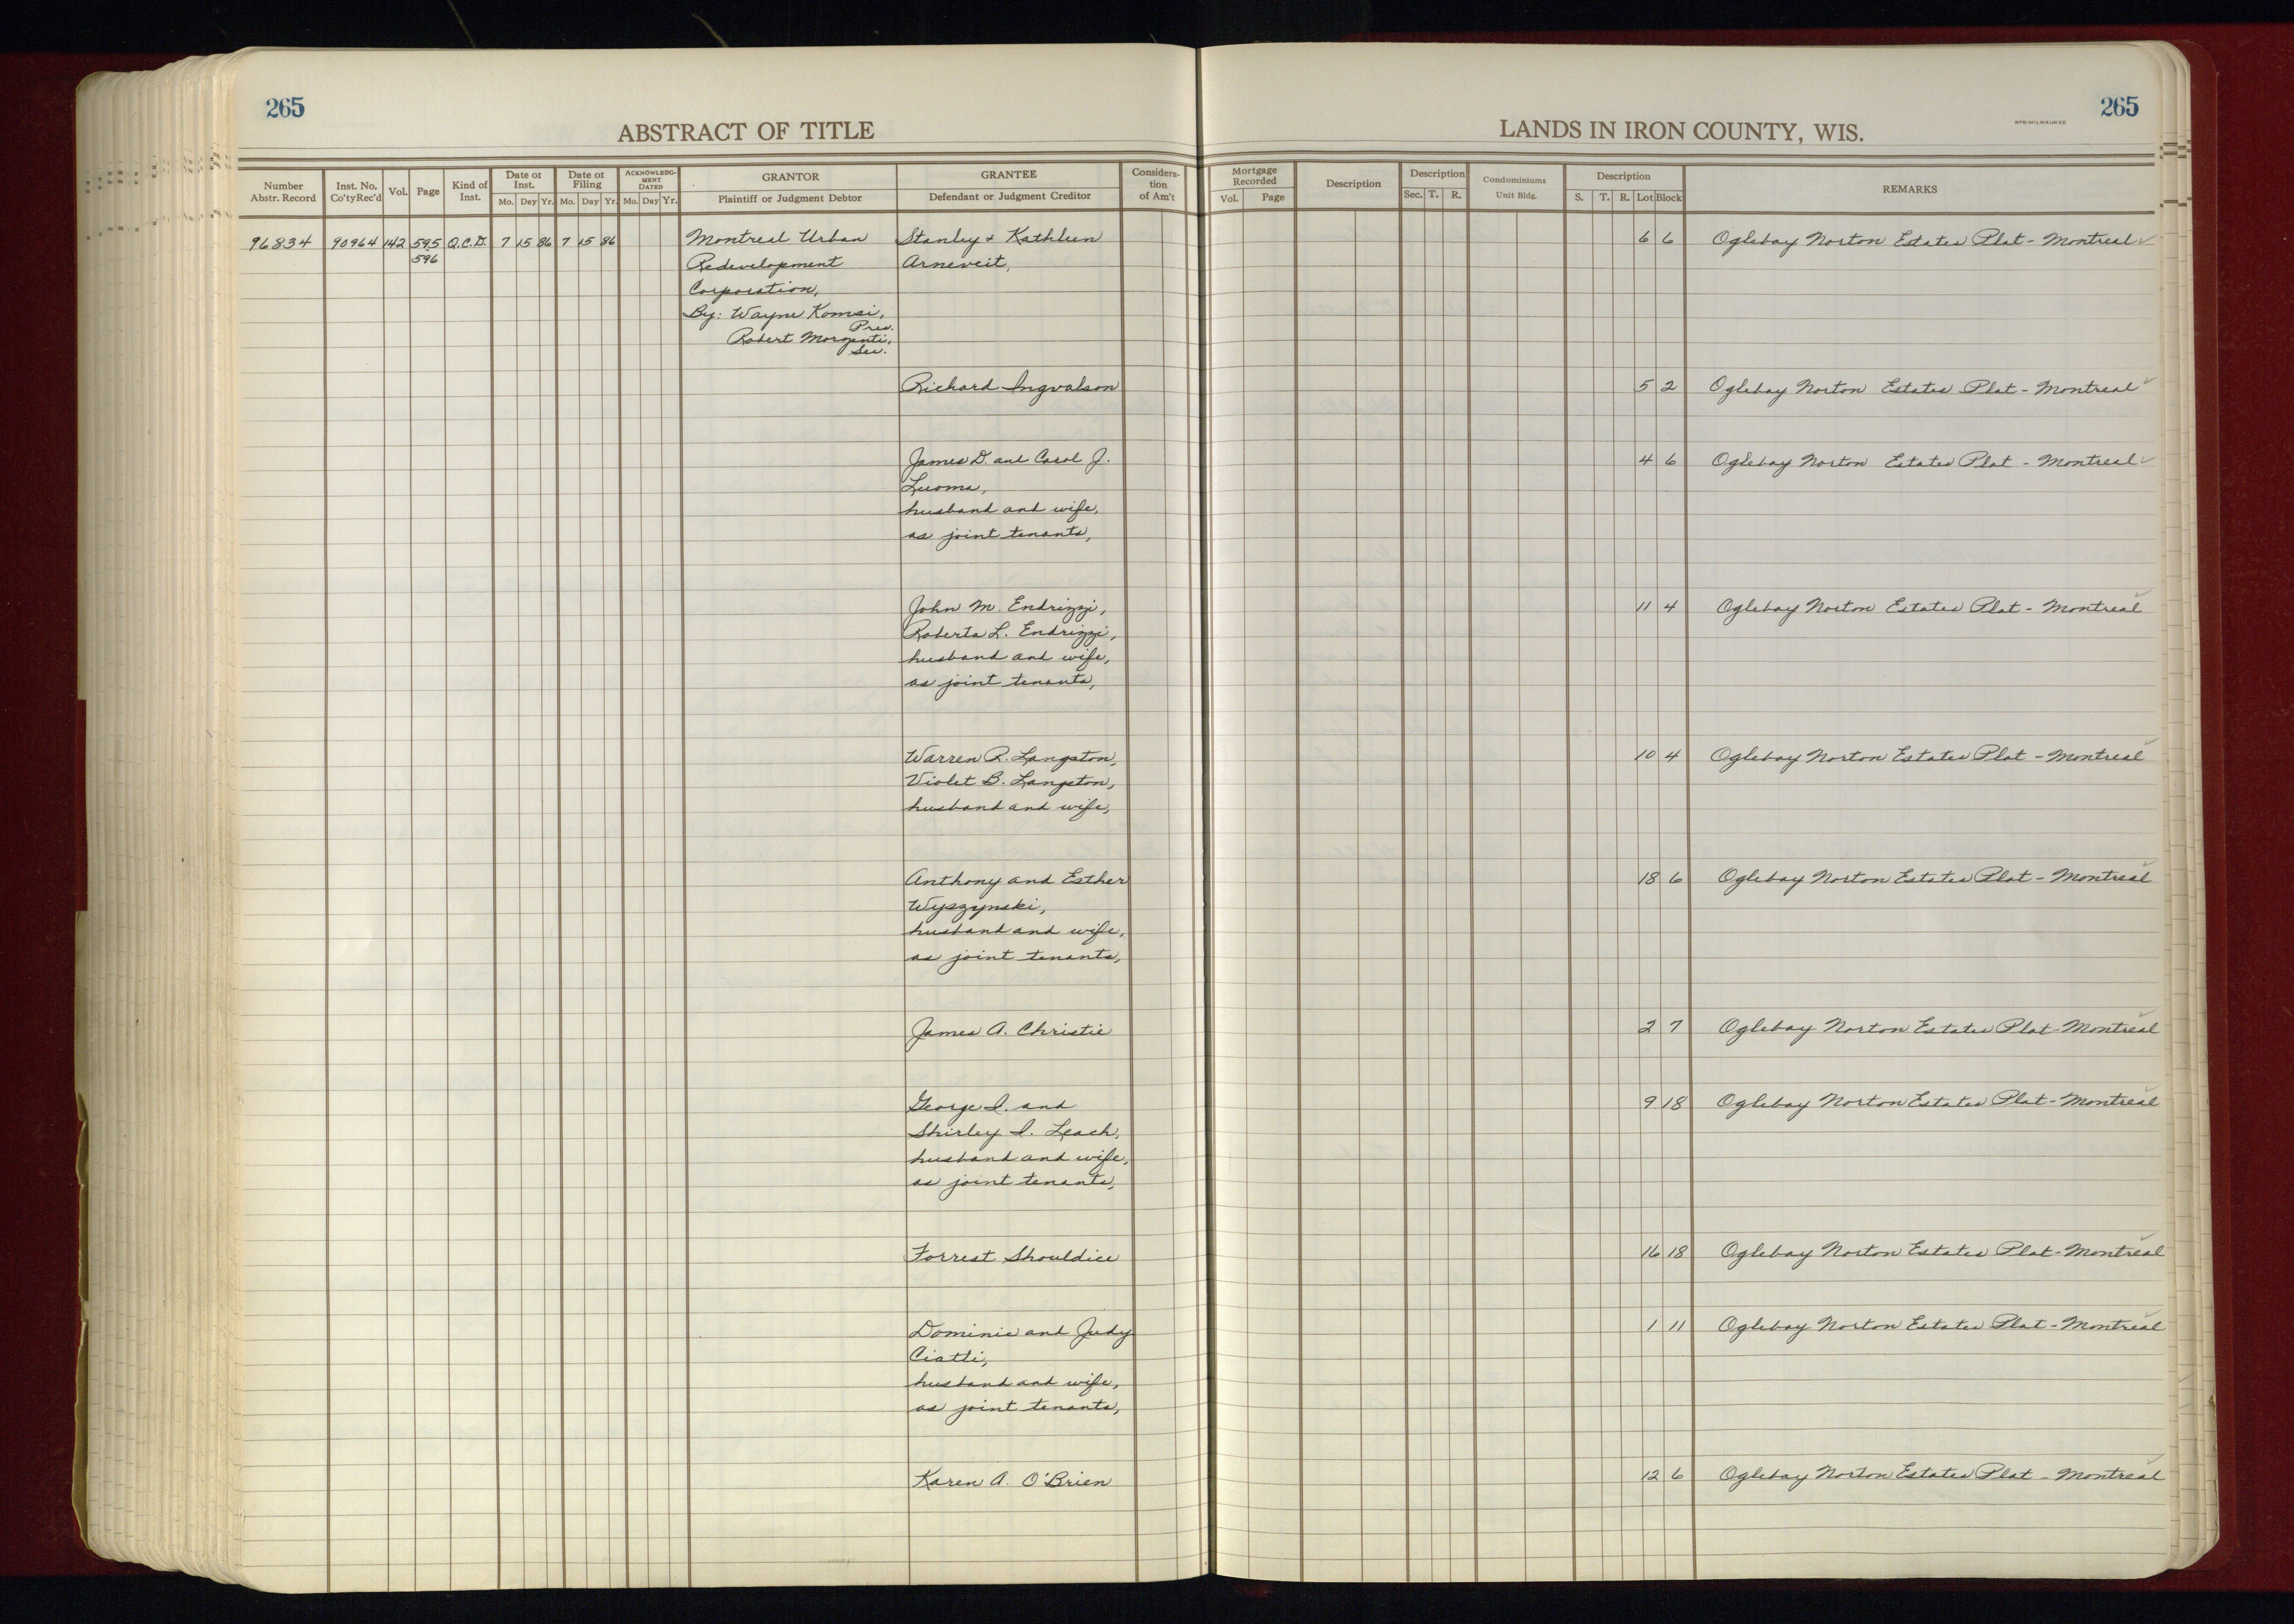 265
265
ABSTRACT OF TITLE
LANDS IN IRON COUNTY, WIS.
MPB-MILWAUKEE
Number Abstr. Record
Inst. No. Co'ty Rec'd
Vol.
Page
Kind of Inst.
Date of Inst.
Mo. Day Yr.
Date of Filing
Mo. Day Yr.
ACKNOWLEDGMENT DATED
Mo. Day Yr.
GRANTOR
Plaintiff or Judgment Debtor
GRANTEE
Defendant or Judgment Creditor
Consideration of Am't
Mortgage Recorded
Vol. Page
Description
Description
Sec. T. R.
Condominiums
Unit Bldg.
Description
S. T. R. Lot Block
REMARKS
96834 90964 142 595 Q.C.D. 7 15 86 7 15 86 Montreal Urban Stanley + Kathleen 6 6 Oglebay Norton Estates Plat - Montreal ✓
596 Redevelopment Arneveit,
Corporation,
By: Wayne Komsi,
Pres.
Robert Morzenti,
Sec.
Richard Ingvalson 5 2 Oglebay Norton Estates Plat - Montreal ✓
James D. and Carol J. 4 6 Oglebay Norton Estates Plat - Montreal ✓
Luoma,
husband and wife,
as joint tenants,
John M. Endrizzi, 11 4 Oglebay Norton Estates Plat - Montreal ✓
Roberta L. Endrizzi,
husband and wife,
as joint tenants,
Warren R. Langston, 10 4 Oglebay Norton Estates Plat - Montreal ✓
Violet B. Langston,
husband and wife,
Anthony and Esther 18 6 Oglebay Norton Estates Plat - Montreal ✓
Wyszynski,
husband and wife,
as joint tenants,
James A. Christie 2 7 Oglebay Norton Estates Plat - Montreal ✓
George I. and 9 18 Oglebay Norton Estates Plat - Montreal ✓
Shirley I. Leach,
husband and wife,
as joint tenants,
Forrest Shouldice 16 18 Oglebay Norton Estates Plat - Montreal ✓
Dominic and Judy 1 11 Oglebay Norton Estates Plat - Montreal ✓
Ciatti,
husband and wife,
as joint tenants,
Karen A. O'Brien 12 6 Oglebay Norton Estates Plat - Montreal ✓